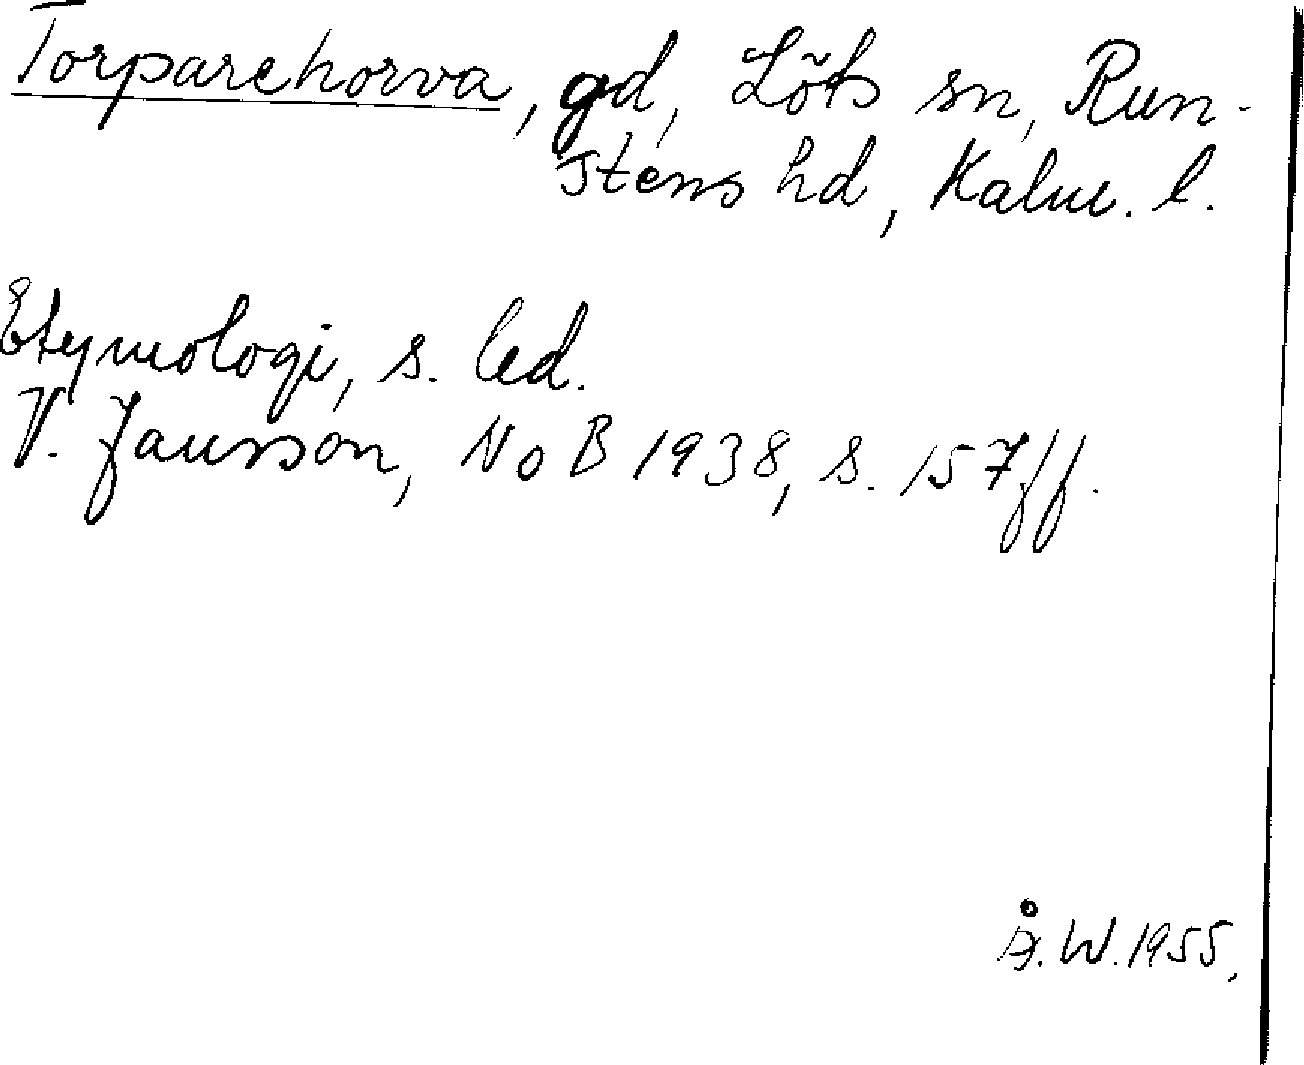 Torparehorva, gd, Löts sn, Run-
stens hd, Kalm. l.
Etymologi, s. led.
V. Jansson, NoB 1938, s. 157 ff.
Å. W. 1955.